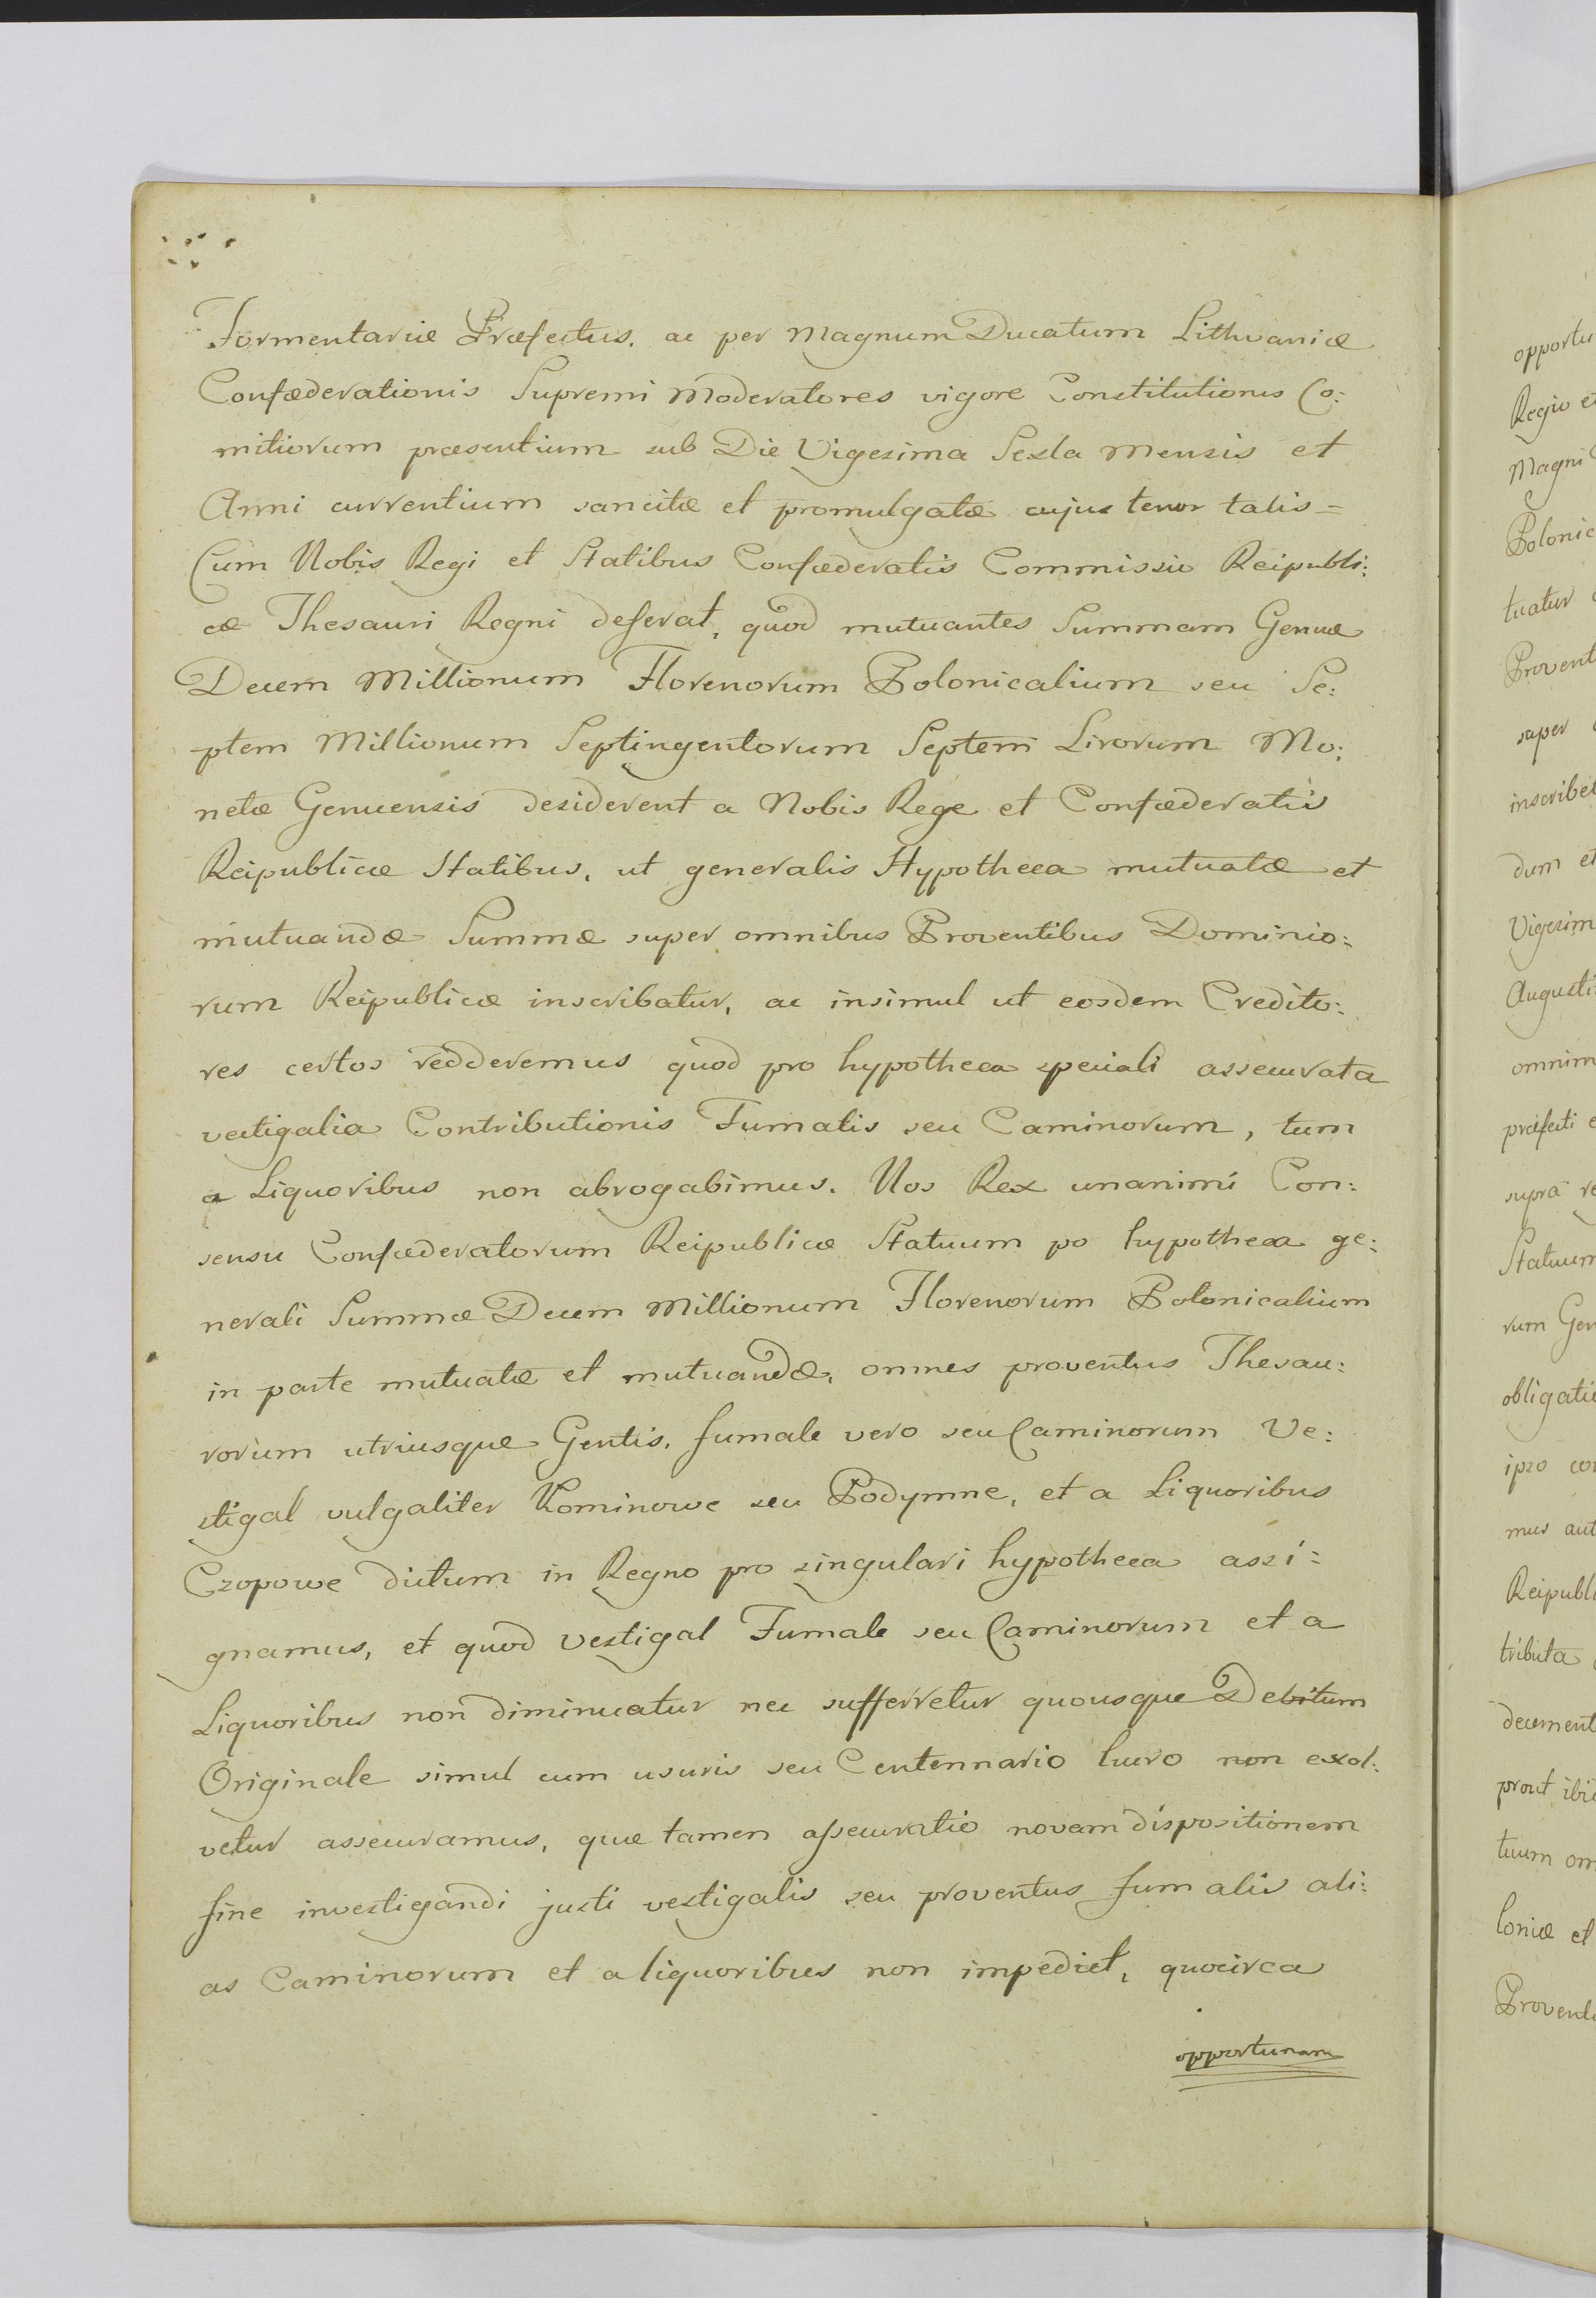 Tormentariæ Præfectus. ac per Magnum Ducatum Lithvaniæ
Confæderationis Supremi Moderatores vigore Constitutionis Co:
mitiorum præsentium sub Die Vigesima Sexta Mensis et
Anni currentium sancitæ et promulgatæ cujus tenor talis =
Cum Nobis Regi et Statibus Confæderatis Commissio Reipubli:
cæ Thesauri Regni deferat, quod mutuantes Summam Genuæ
Decem Millionum Florenorum Polonicalium seu Se:
ptem Millionum Septingentorum Septem Lirorum Mo:
netæ Genuensis desiderent a Nobis Rege et Confæderatis
Reipublicæ Statibus, ut generalis Hypotheca mutuatæ et
mutuandæ Summæ super omnibus Proventibus Dominio:
rum Reipublicæ inscribatur, ac insimul ut eosdem Credito:
res certos redderemus quod pro hypotheca speciali assecurata
vectigalia Contributionis Fumalis seu Caminorum, tum
a Liquoribus non abrogabimus. Nos Rex unanimi Con:
sensu Confæderatorum Reipublicæ Statuum po hypotheca ge:
nerali Summæ Decem Millionum Florenorum Polonicalium
in parte mutuatæ et mutuandæ, omnes proventus Thesau:
rorum utriusque Gentis, fumale vero seu Caminorum Ve:
stigal vulgaliter Kominowe seu Podymne, et a Liquoribus
Czopowe dictum in Regno pro singulari hypotheca assi:
gnamus, et quod vestigal Fumale seu Caminorum et a
Liquoribus non diminuatur nec sufferretur quousque Debitum
Originale simul cum usuris seu Centennario lucro non exol:
vetur assecuramus, quæ tamen assecuratio novam dispositionem
fine investigandi justi vestigalis seu proventus fumalis ali:
as Caminorum et a liquoribus non impediet, quocirca
opportunam
opportu
Regio et
Magni
Polonic
tuatur
Provent
super
inscribet
dum et
Vigesim
Augusti
omnim
præfecti e
supra re
Statuum
rum Gen
obligatio
ipso con
mus aut
Reipubli
tributa
decement
prout ibi
tuum om
loniæ et
Provent